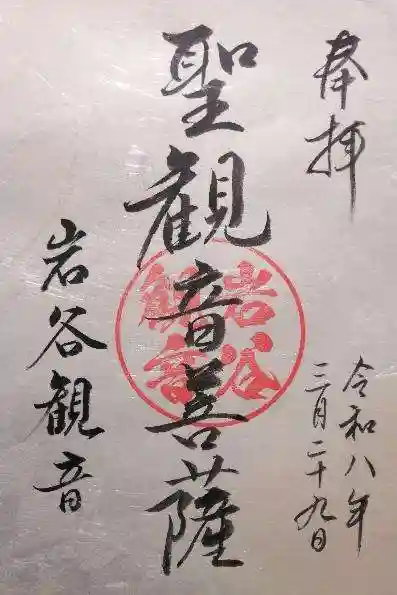 奉拝
令和八年
三月二十九日
聖観音菩薩
岩谷
観音
岩谷観音